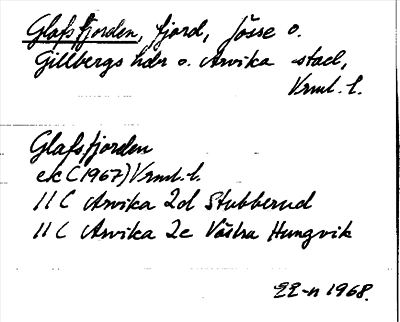 Glafsfjorden, fjord, Jösse o.
Gillbergs hdr o. Arvika stad,
Vrml. l.
Glafsfjorden
ek (1967) Vrml. l.
11 C Arvika 2d Stubberud
11 C Arvika 2c Västra Hungvik
1968.